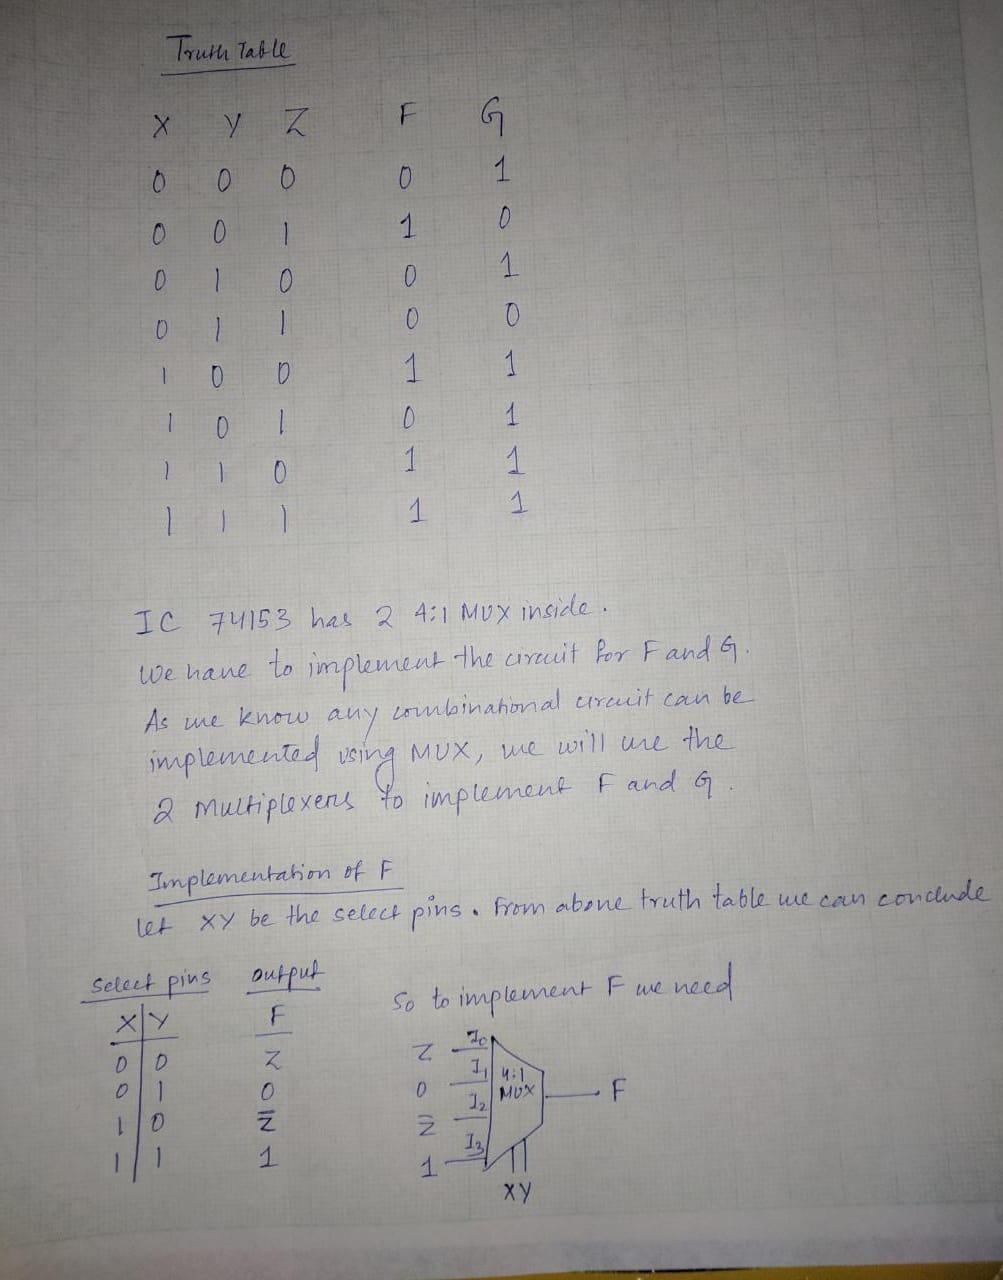 Truth Table
X Y Z F G
0 0 0 0 1
0 0 1 1 0
0 1 0 0 1
0 1 1 0 0
1 0 0 1 1
1 0 1 0 1
1 1 0 1 1
1 1 1 1 1
IC 74153 has 2 4:1 MUX inside.
We have to implement the circuit for F and G.
As we know any combinational circuit can be
implemented using MUX, we will use the
2 multiplexers to implement F and G.
Implementation of F
let XY be the select pins. From above truth table we can conclude
Select pins output
X Y F
0 0 Z
0 1 0
1 0 Z̅
1 1 1
So to implement F we need
Z I0
0 I1
Z̅ I2
1 I3
4:1
MUX
F
XY